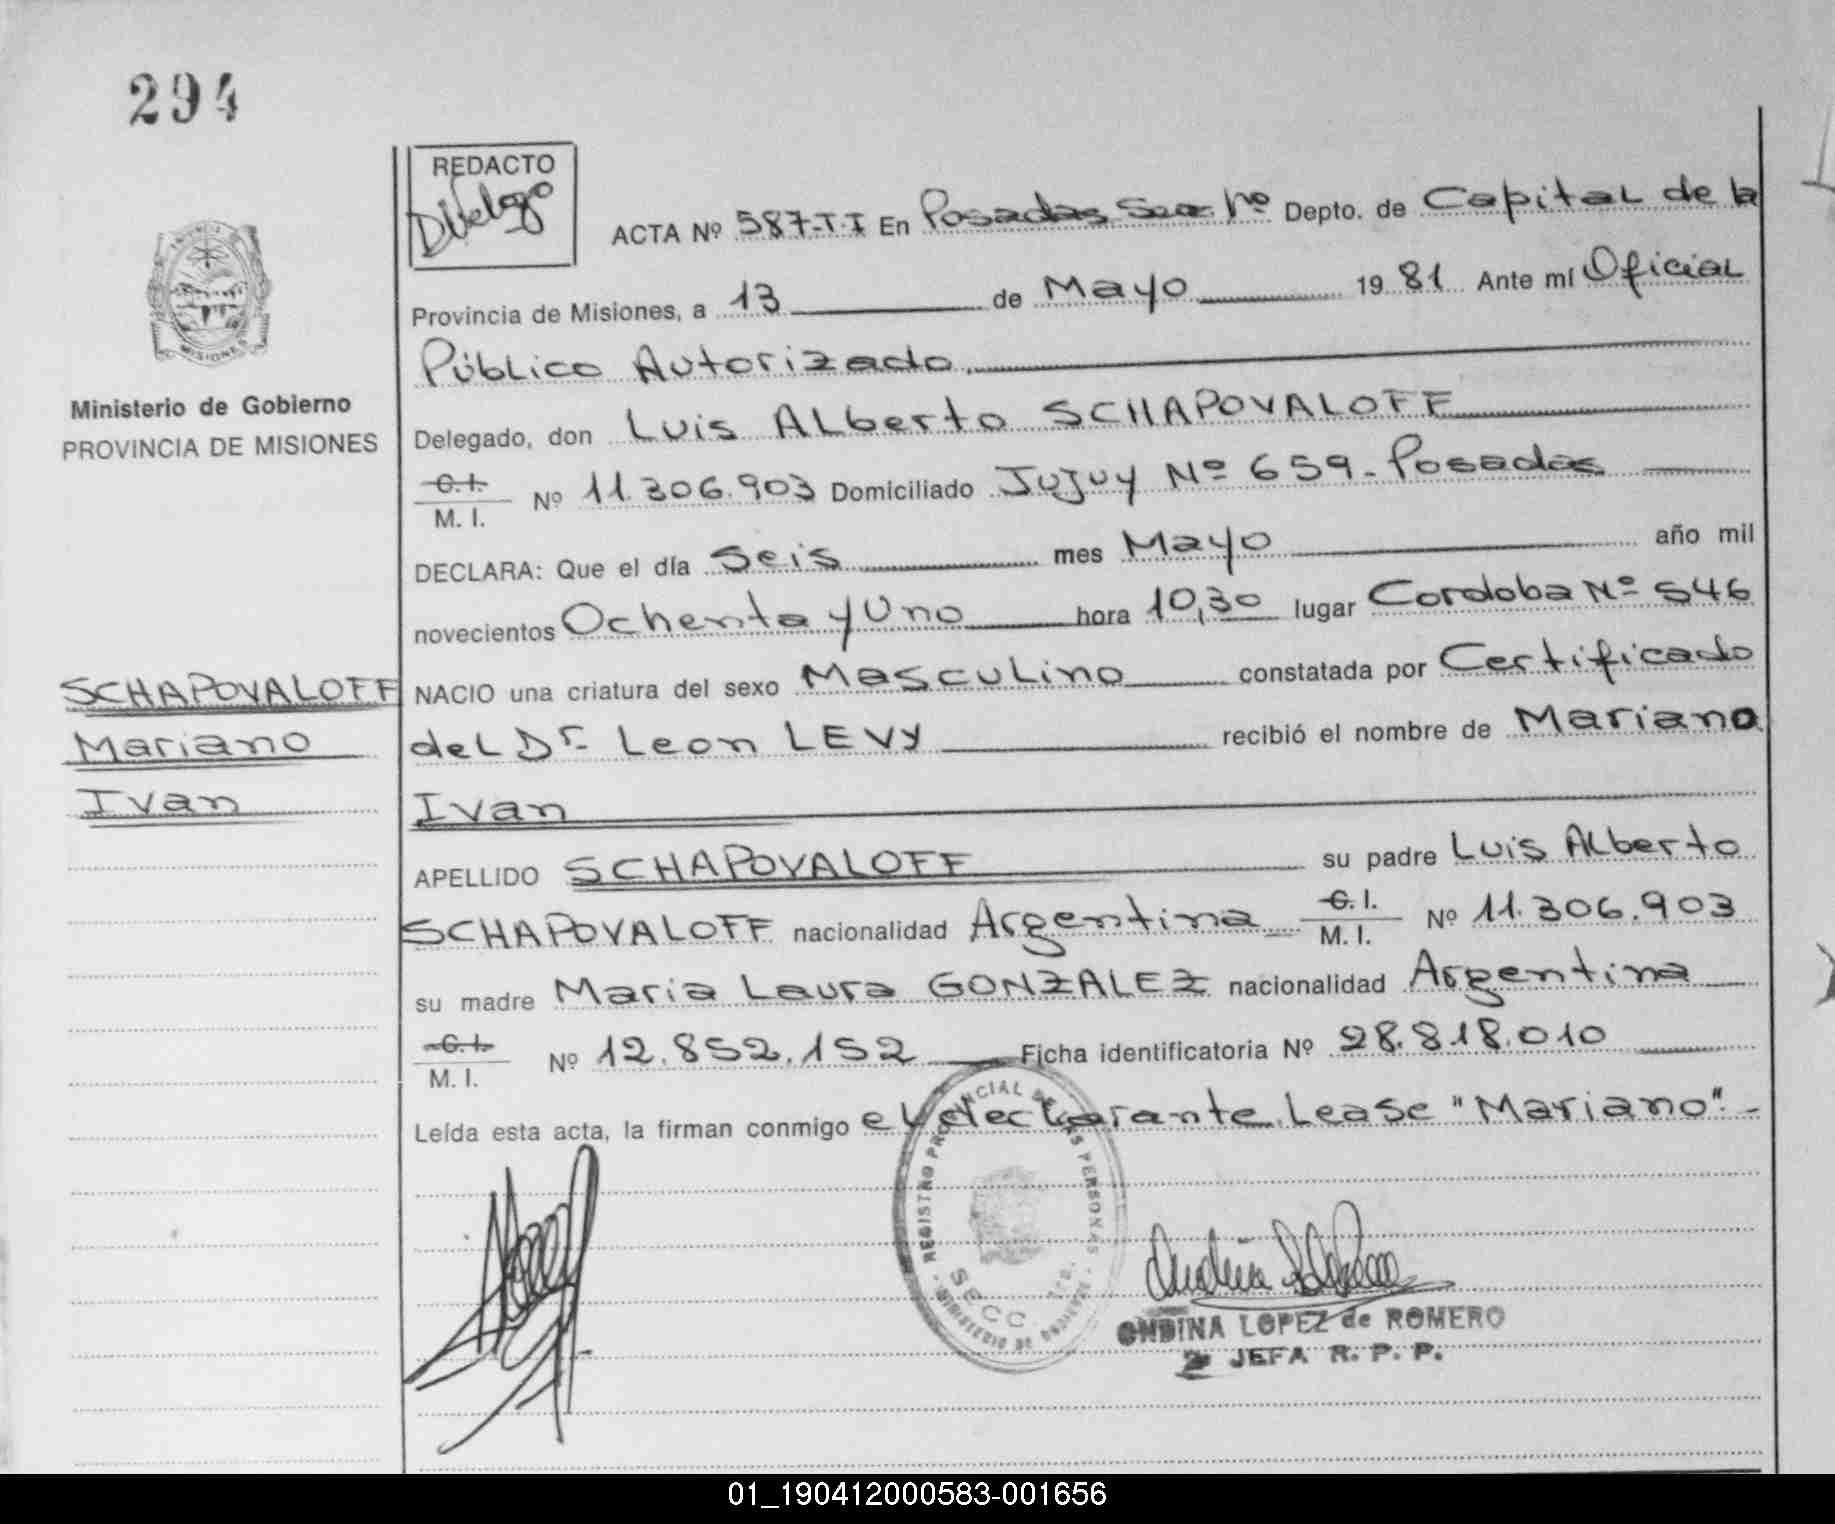 294
REDACTO
ACTA Nº 587-T-I En Posadas Sec. 1ª Depto. de Capital de la
Provincia de Misiones, a 13 de Mayo 1981 Ante mí Oficial
Público Autorizado.
Ministerio de Gobierno
PROVINCIA DE MISIONES
Delegado, don Luis Alberto SCHAPOVALOFF
C.I.
M. I. Nº 11.306.903 Domiciliado Jujuy Nº 659 - Posadas
DECLARA: Que el día Seis mes Mayo año mil
novecientos Ochenta y Uno hora 10,30 lugar Cordoba Nº 546
SCHAPOVALOFF
Mariano
Ivan
NACIO una criatura del sexo Masculino constatada por Certificado
del Dr. Leon LEVY recibió el nombre de Mariano
Ivan
APELLIDO SCHAPOVALOFF su padre Luis Alberto
SCHAPOVALOFF nacionalidad Argentina C. I. M. I. Nº 11.306.903
su madre Maria Laura GONZALEZ nacionalidad Argentina
C. I.
M. I. Nº 12.852.152 Ficha identificatoria Nº 28.818.010
Leída esta acta, la firman conmigo el declarante. Lease "Mariano".-
REGISTRO PROVINCIAL DE LAS PERSONAS
SECC. 1ra.
MINISTERIO DE GOBIERNO
MISIONES
ONDINA LOPEZ de ROMERO
JEFA R. P. P.
01_190412000583-001656